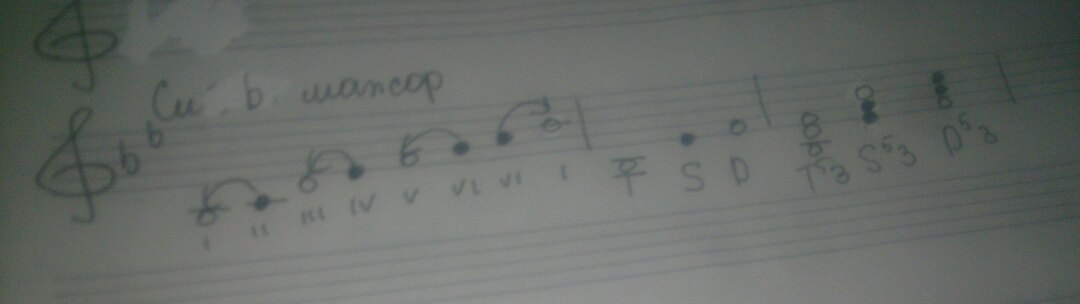 Си b мажор
b b
I II III IV V VI VI I T S D T53 S53 D53